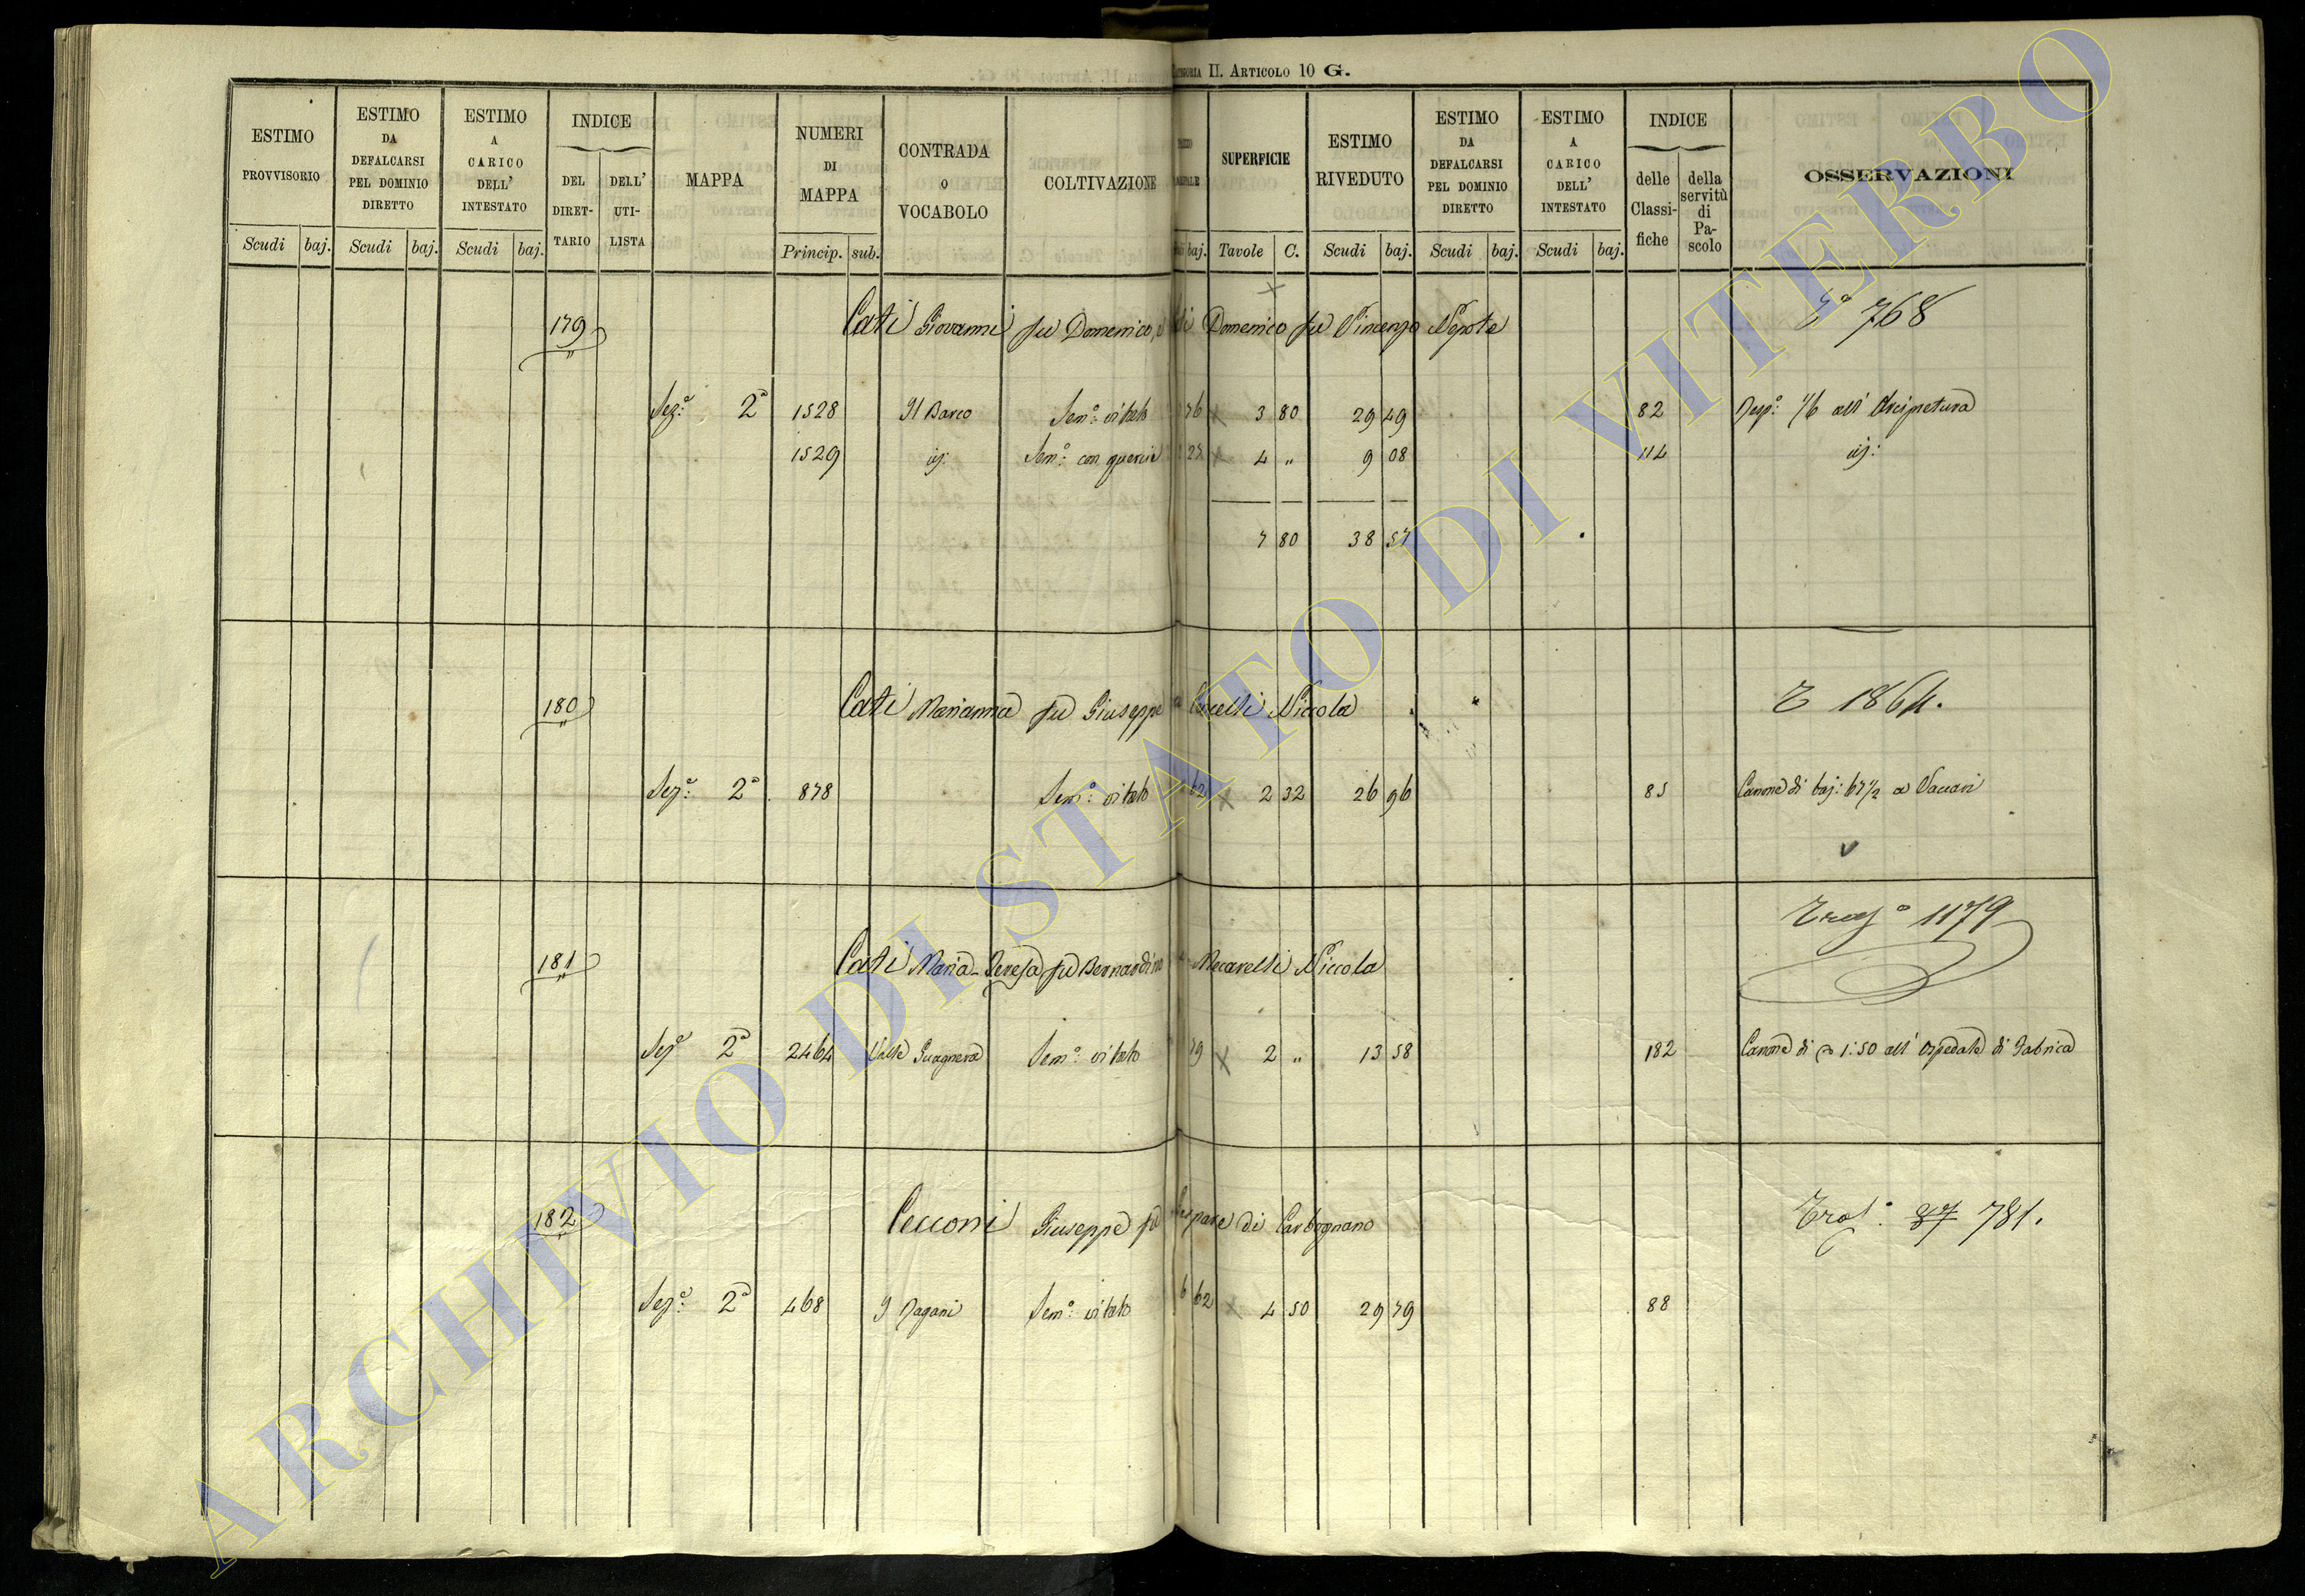 CATEGORIA II. ARTICOLO 10 G.
ESTIMO PROVVISORIO
ESTIMO DA DEFALCARSI PEL DOMINIO DIRETTO
ESTIMO A CARICO DELL' INTESTATO
INDICE
DEL DIRETTARIO
DELL' UTILISTA
MAPPA
NUMERI DI MAPPA
CONTRADA O VOCABOLO
COLTIVAZIONE
SUPERFICIE
ESTIMO RIVEDUTO
ESTIMO DA DEFALCARSI PEL DOMINIO DIRETTO
ESTIMO A CARICO DELL' INTESTATO
INDICE
delle Classifiche
della servitù di Pascolo
OSSERVAZIONI
Scudi baj. Scudi baj. Scudi baj. Princip. sub. baj. Tavole C. Scudi baj. Scudi baj. Scudi baj.
179 Cati Giovanni fu Domenico, Domenico fu Vincenzo Nepote 768
Sez.e 2a 1528 Il Barco Sem.o vitato 76 3 80 29 49 82 Risp.a 1/6 all' Arcipretura
1529 id: Sem.o con quercie 27 4 „ 9 08 114 id:
7 80 38 57
180 Cati Marianna fu Giuseppe Niccola 1864.
Sez.e 2a 878 Sem.o vitato 62 2 32 26 96 85 Canone di baj: 67 1/2 a Vaccari
181 Cati Maria-Teresa fu Bernardino Mecarelli Niccola 1179
Sez.e 2a 2464 Valle Guagnera Sem.o vitato 79 2 „ 13 58 182 Canone di 1:50 all' Ospedale di Fabrica
182 Cecconi Giuseppe fu Gaspare di Carbognano 781.
Sez.e 2a 468 I Pagani Sem.o vitato 6 62 4 50 29 79 88
ARCHIVIO DI STATO DI VITERBO